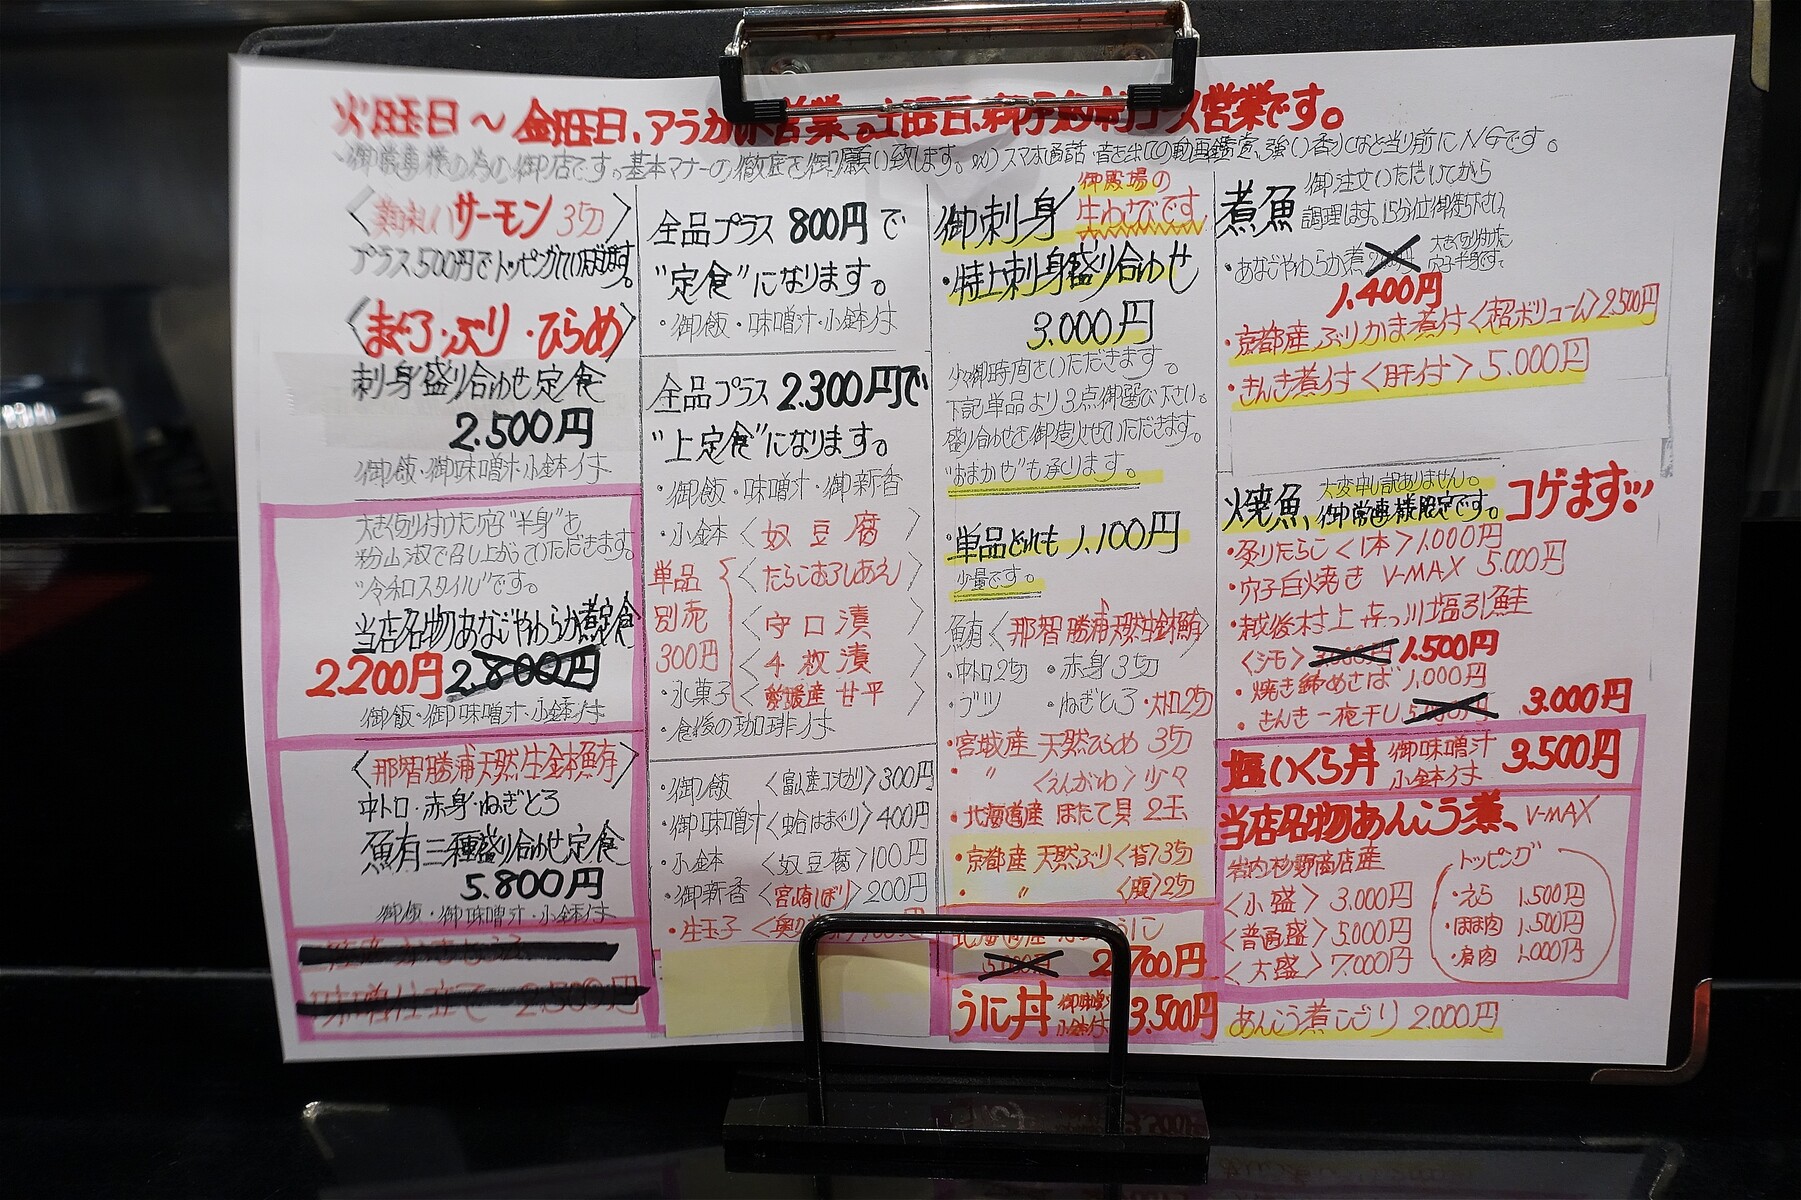 火曜日〜金曜日、アラカルト営業。土曜日、御予約制コース営業です。
御常連様の為の御店です。基本マナーの徹底を御願い致します。例)スマホ通話・音を出しての動画鑑賞、強い香水など当り前にNGです。
〈麹味いサーモン3切〉
プラス500円でトッピングしていただけます。
〈まぐろ・ぶり・ひらめ〉
刺身盛り合わせ定食
2.500円
御飯・御味噌汁・小鉢付
大きく切り付けた穴子"半身"を
粉山椒で召し上がっていただきます。
"令和スタイル"です。
当店名物あなごやわらか煮定食
2.200円 2.800円
御飯・御味噌汁・小鉢付
〈那智勝浦天然生本鮪〉
中トロ・赤身・ねぎとろ
鮪三種盛り合わせ定食
5.800円
御飯・御味噌汁・小鉢付
味噌仕立て 2.500円
全品プラス800円で
"定食"になります。
・御飯・味噌汁・小鉢付
全品プラス2.300円で
"上定食"になります。
・御飯・味噌汁・御新香
・小鉢〈奴豆腐〉
単品別売300円
〈たらこおろしあえ〉
〈守口漬〉
〈4枚漬〉
・氷菓子〈愛媛産甘平〉
・食後の珈琲付
・御飯〈富山産コシヒカリ〉300円
・御味噌汁〈蛤はまぐり〉400円
・小鉢〈奴豆腐〉100円
・御新香〈宮崎しぼり〉200円
・生玉子
御刺身 御殿場の生わさびです
・特上刺身盛り合わせ
3.000円
少々御時間をいただきます。
下記単品より3点御選び下さい。
盛り合わせを御造りさせていただきます。
"おまかせ"も承ります。
・単品どれも1.100円
少量です。
鮪〈那智勝浦天然生本鮪〉
・中トロ2切 ・赤身3切
・ブツ ・ねぎとろ ・大トロ2切
・宮城産 天然ひらめ 3切
・〃 〈えんがわ〉少々
・北海道産 ほたて貝 2玉
・京都産 天然ぶり〈背〉3切
・〃 〈腹〉2切
5.000円 2.700円
うに丼 御味噌汁 小鉢付 3.500円
煮魚 御注文いただいてから
調理します。15分位御待ち下さい。
・あなごやわらか煮 大きく切り付けた
穴子半身です。
1.400円
・京都産ぶりかま煮付〈超ボリューム〉2.500円
・きんき煮付〈肝付〉5.000円
焼魚 大変申し訳ありません。
御常連様限定です。コゲます
・炙りたらこ〈1本〉1.000円
・穴子白焼き V-MAX 5.000円
・越後村上 三面川塩引鮭
〈シモ〉 1.500円
・焼き締めさば 1.000円
・きんき一夜干し 3.000円
塩いくら丼 御味噌汁 小鉢付 3.500円
当店名物あんこう煮、V-MAX
岩内杉野商店産
〈小盛〉3.000円
〈普通盛〉5.000円
〈大盛〉7.000円
トッピング
・えら 1.500円
・ほほ肉 1.500円
・肩肉 1.000円
あんこう煮こごり 2.000円